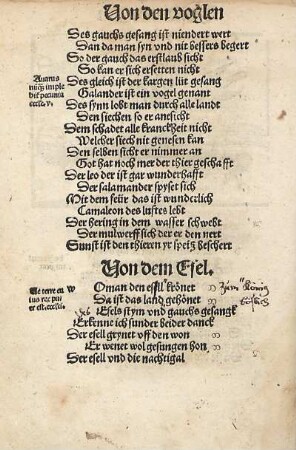 Von den voglen
Des gauchs gesang ist niendert wert
Dan da man syn vnd nit bessers begert
So der gauch das erstlaub sicht
So kan er sich ersetten nicht
Auarus
nunq̃ imple
bit᷑ pecunia
eccle. v.
Des gleich ist der kargen lüt gesang
Galander ist ein vogel genant
Des synn lobt man durch alle landt
Den siechen so er ansicht
Dem schadet alle kranckheit nicht
Welcher siech nit genesen kan
Den selben sicht er nimmer an
Got hat noch mer der thier geschafft
Der leo der ist gar wunderhafft
Der salamander spyset sich
Mit dem feür das ist wunderlich
Camaleon des luftes lebt
Der hering in dem wasser schwebt
Der mulwerff sich der erden nert
Sunst ist den thieren yr speiß beschert
Von dem Esel.
Ve terre cu
ius rex puer
est. eccle.
Wo man den essel krönet
Da ist das land gehönet
Esels stym vnd gauchs gesangk
Erkenne ich sunder beider danck
Der esell grynet vff den won
Er wenet wol gesungen hon
Der esell vnd die nachtigal
zum König